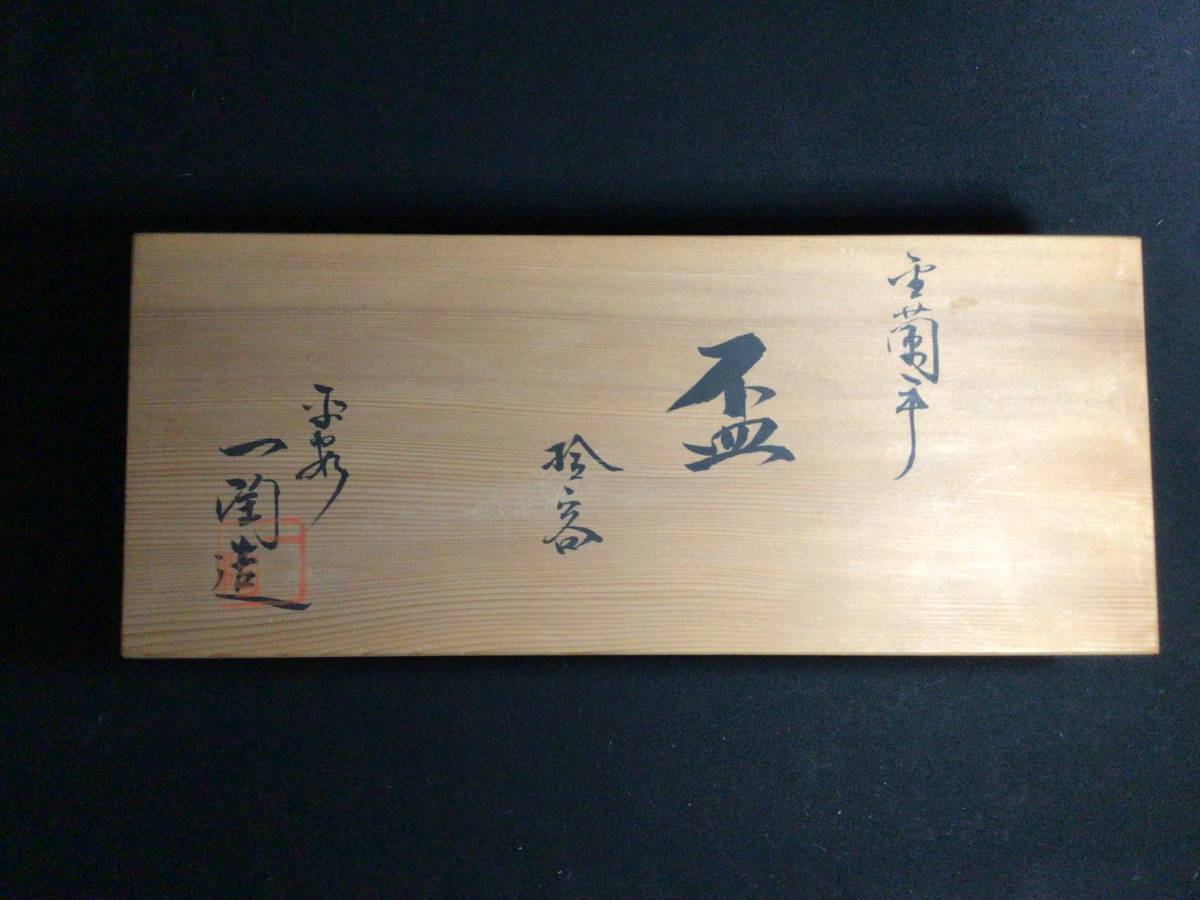 雲蘭手
盃
拾客
平安
一陶造